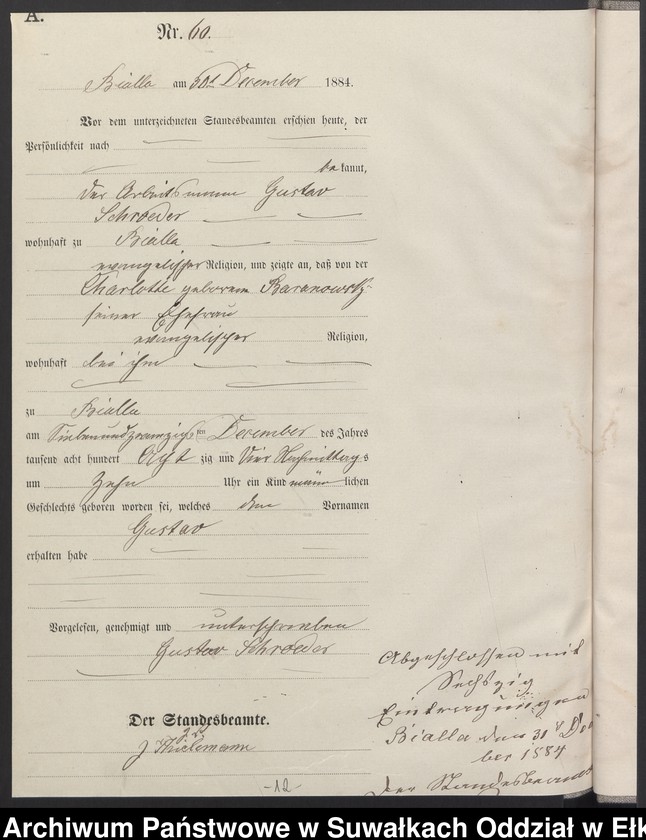 A.
Nr. 60.
Bialla am 30t December 1884.
Vor dem unterzeichneten Standesbeamten erschien heute, der
Persönlichkeit nach
bekannt,
der Arbeitsmann Gustav
Schroeder
wohnhaft zu Bialla
evangelischer Religion, und zeigte an, daß von der
Charlotte geborenen Baranowski
seiner Ehefrau
evangelischer Religion,
wohnhaft bei ihm
zu Bialla
am Siebenundzwanzigsten December des Jahres
tausend acht hundert Achtzig und Vier Nachmittags
um Zehn Uhr ein Kind männlichen
Geschlechts geboren worden sei, welches den Vornamen
Gustav
erhalten habe
Vorgelesen, genehmigt und unterschrieben
Gustav Schroeder
Der Standesbeamte.
Thielemann
Abgeschlossen mit
Sechszig
Eintragungen
Bialla den 31t Decem
ber 1884
Der Standesbeamte
-12-
Archiwum Państwowe w Suwałkach Oddział w Ełk